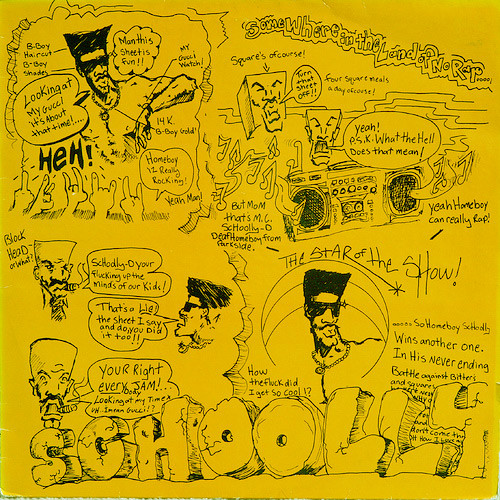 B-Boy
Haircut
B-Boy
Shades
Man this
Sheet is
fun!!
MY
Gucci
Watch!
Looking at
My Gucci
it's About
that time!....
14 K.
B-Boy Gold!
HeH!
Homeboy
iz Really
Rocking!
Yeah Man!
Some Where in the Land of No Rap...
Square's of course!
Turn
that
Sheet
OFF!!
Four Square meals
a day of course!
yeah!
P.S.K. What the Hell
Does that mean!
But Mom
that's M.C.
Schoolly-D
Def Homeboy from
Parkside.
yeah Homeboy
can really Rap!
Block
HeaD
or What?
Schoolly-D your
flucking up the
minds of our Kids!
Thats a Lie!
the Sheet I say
and do you Did
it too!!
YOUR Right
every JAM!...
Looking at my Timex
The STAR of the Show!
How
the fluck did
I get So Cool!?
..... So Homeboy Schoolly
Wins another one.
In His never ending
Battle against Biters
and squares
SCHOOLLY